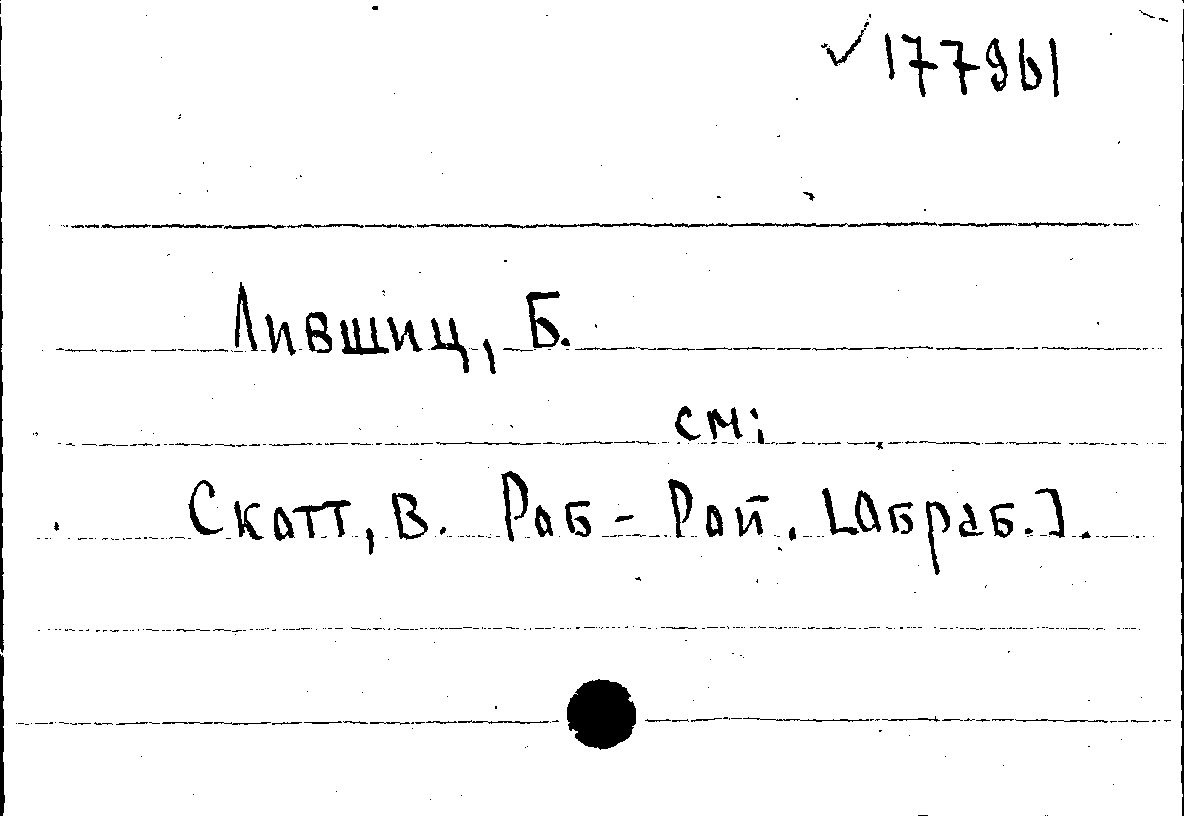 ✓177961
Лившиц, Б.
см:
Скотт, В. Роб-Рой. [Обраб.].